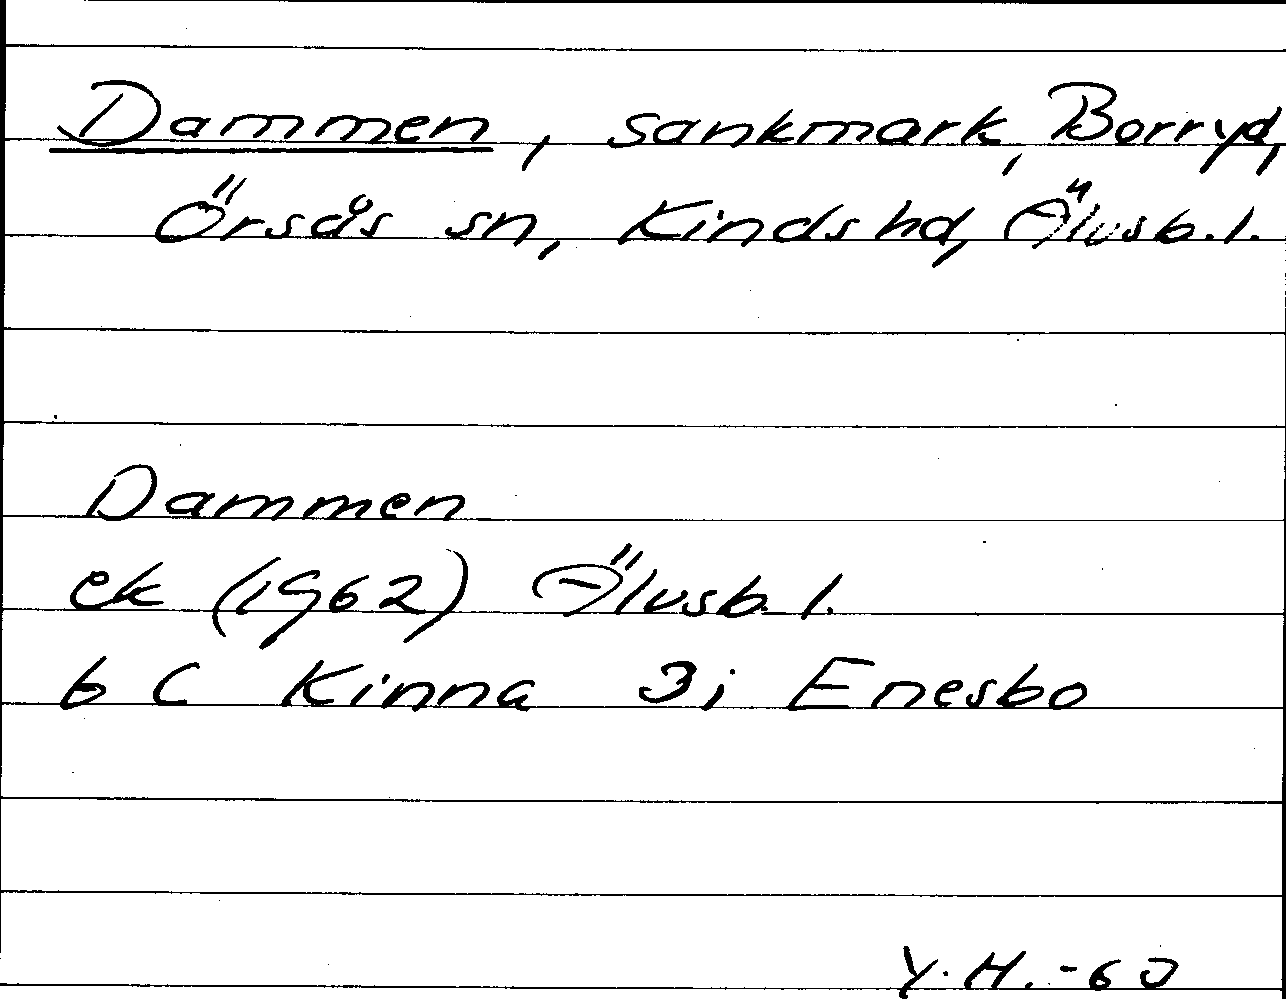 Dammen, sankmark, Borryd,
Örsås sn, Kinds hd, Älvsb. l.
Dammen
ek (1962) Älvsb. l.
6 C Kinna 3i Enesbo
Y. H. -60